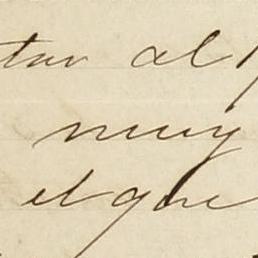 tar al
muy
el que